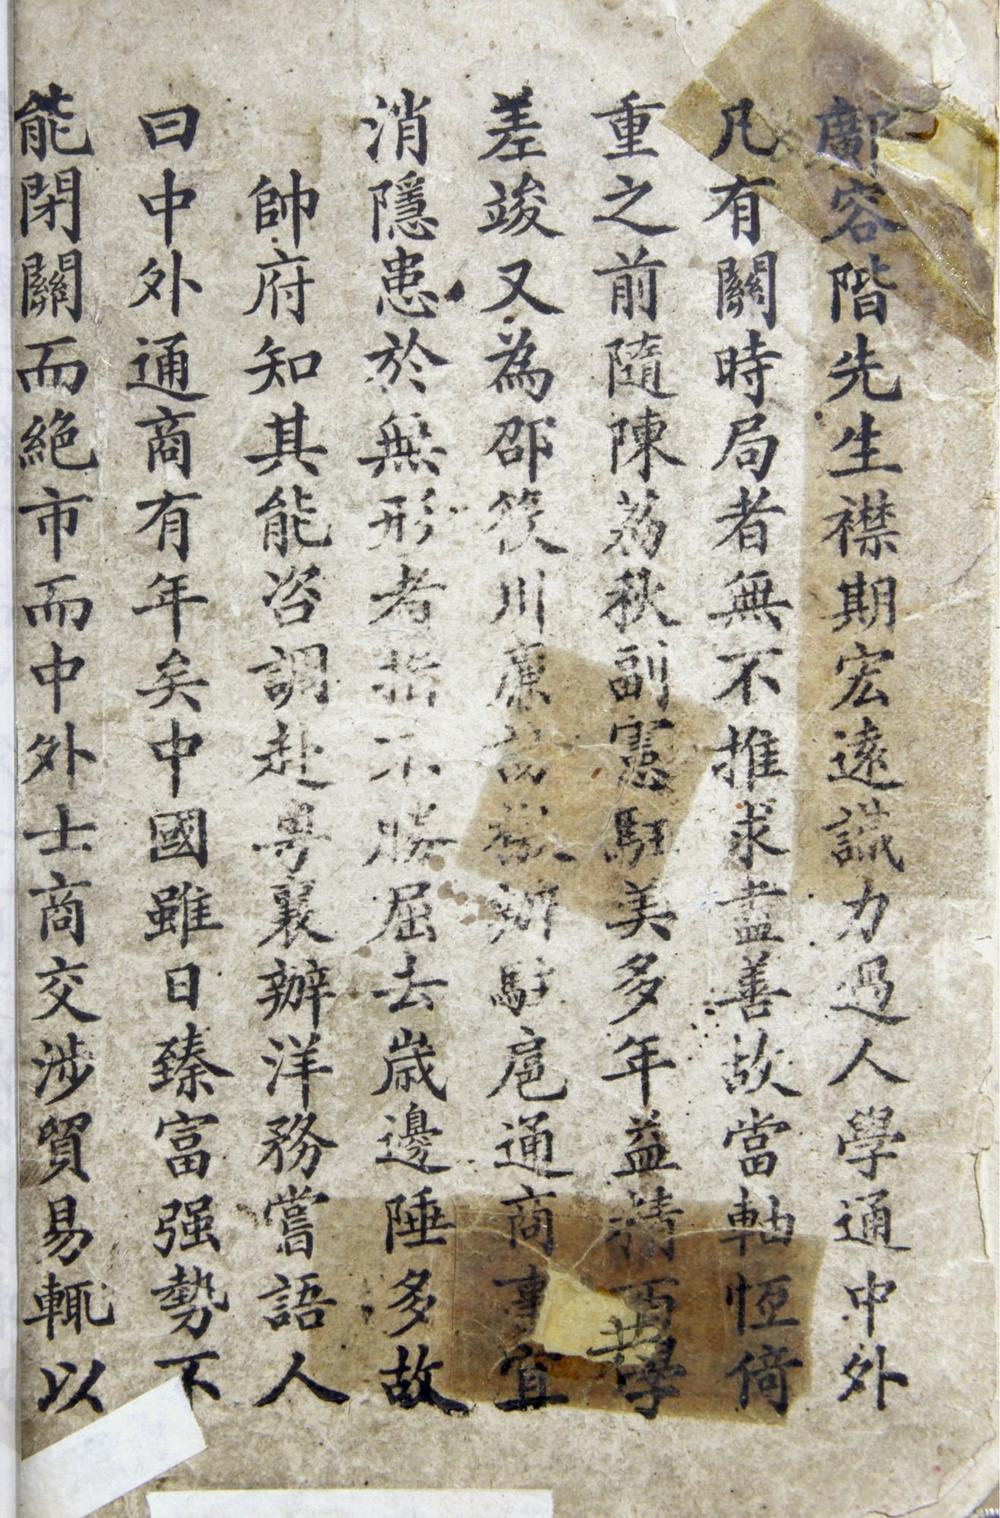 鄺容階先生襟期宏遠識力過人學通中外
凡有關時局者無不推求盡善故當軸恆倚
重之前隨陳荔秋副憲駐美多年益精西學
差竣又為邵筱川廉訪檄辦駐扈通商事宜
消隱患於無形者指不勝屈去歲邊陲多故
帥府知其能咨調赴粵襄辦洋務嘗語人
曰中外通商有年矣中國雖日臻富强勢不
能閉關而絕市而中外士商交涉貿易輒以